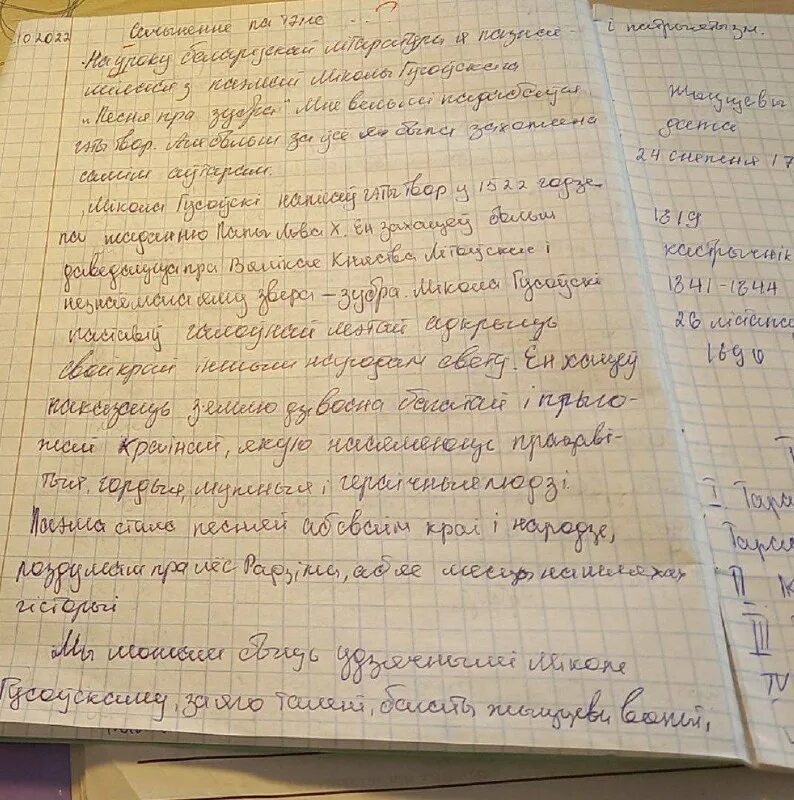 10 2022
Сачыненне па тэме ...
На уроку беларускай літаратуры я пазнаё-
мілася з паэмай Міколы Гусоўскага
„Песня пра зубра" Мне вельмі падабаўся
гэты твор. Але больш за ўсё я была захоплена
самім аўтарам.
Мікола Гусоўскі напісаў гэты твор у 1522 годзе
па жаданню Папы Льва X. Ён захацеў больш
даведацца пра Вялікае Княства Літоўскае і
незнаёмага яму звера – зубра. Мікола Гусоўскі
паставіў галоўнай мэтай адкрыць
свой край іншым народам свету. Ён хацеў
паказаць зямлю дзівосна багатай і прыго-
жай краінай, якую насяляюць працаві-
тыя, гордыя, мужныя і гераічныя людзі.
Паэма стала песняй аб сваім краі і народзе,
роздумам пра лёс Радзімы, аб яе месцы на шляхах
гісторыі
Мы можам быць удзячнымі Міколе
Гусоўскаму, за яго талент, багаты жыццёвы вопыт,
і патрыятызм.
Жыццёвы
дата
24 снежня 17
1819
кастрычнік
1841-1844
26
1890
I Тара
Тарас
II
III
IV